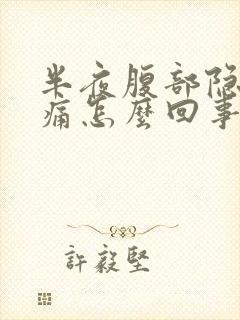 半夜腹部隐
痛怎麼回事
許毅堅